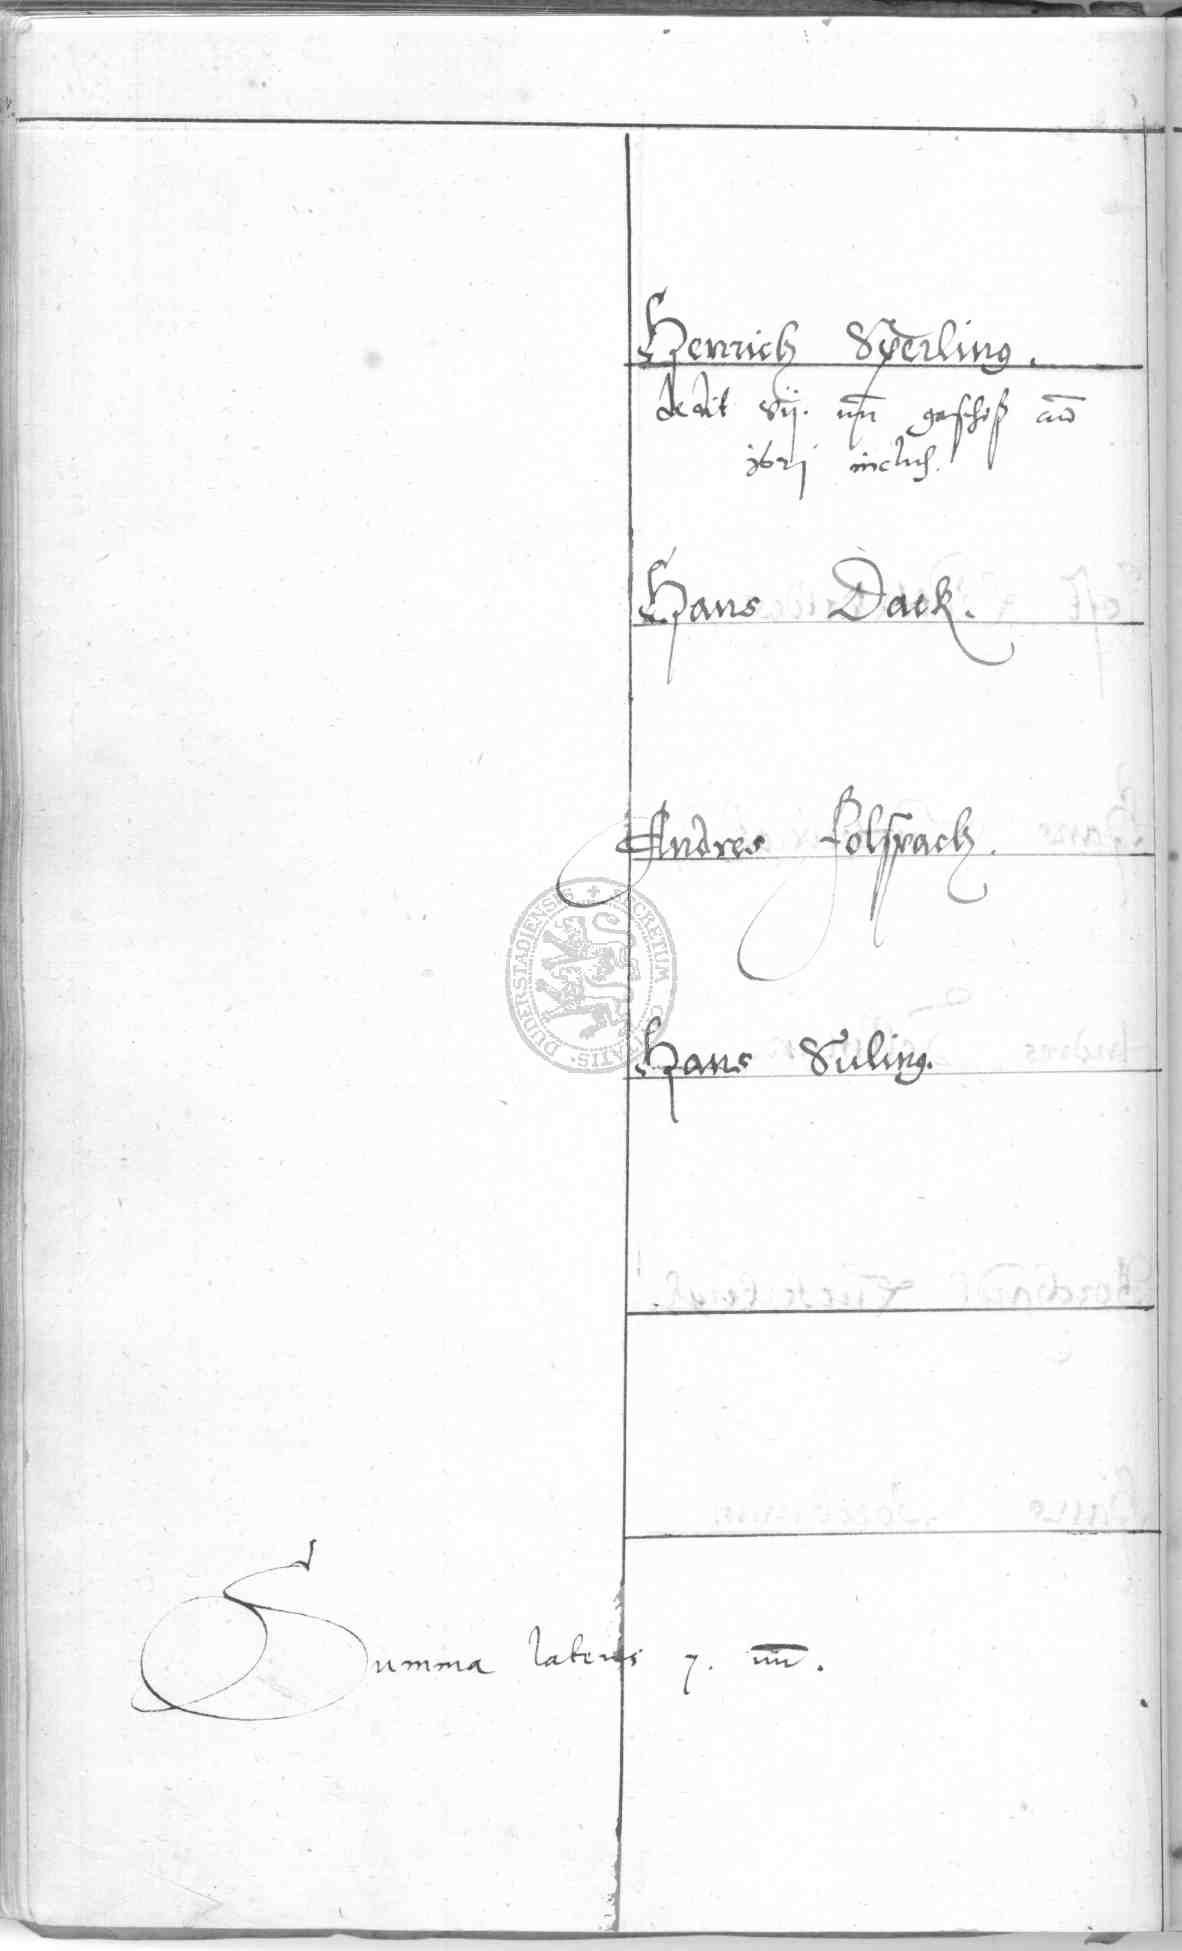 Henrich Sperling.
dedit vij. mͬ geschoß aō
1621 inclus.
Hans Dack.
Andres Folsrach.
Hans Suling.
SECRETUM CIVITATIS DUDERSTADIENSIS
Summa lateris 7.